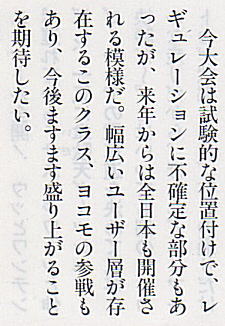 今大会は試験的な位置付けで、レ
ギュレーションに不確定な部分もあ
ったが、来年からは全日本も開催さ
れる模様だ。幅広いユーザー層が存
在するこのクラス、ヨコモの参戦も
あり、今後ますます盛り上がること
を期待したい。